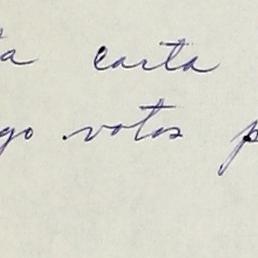 a carta
go votos p